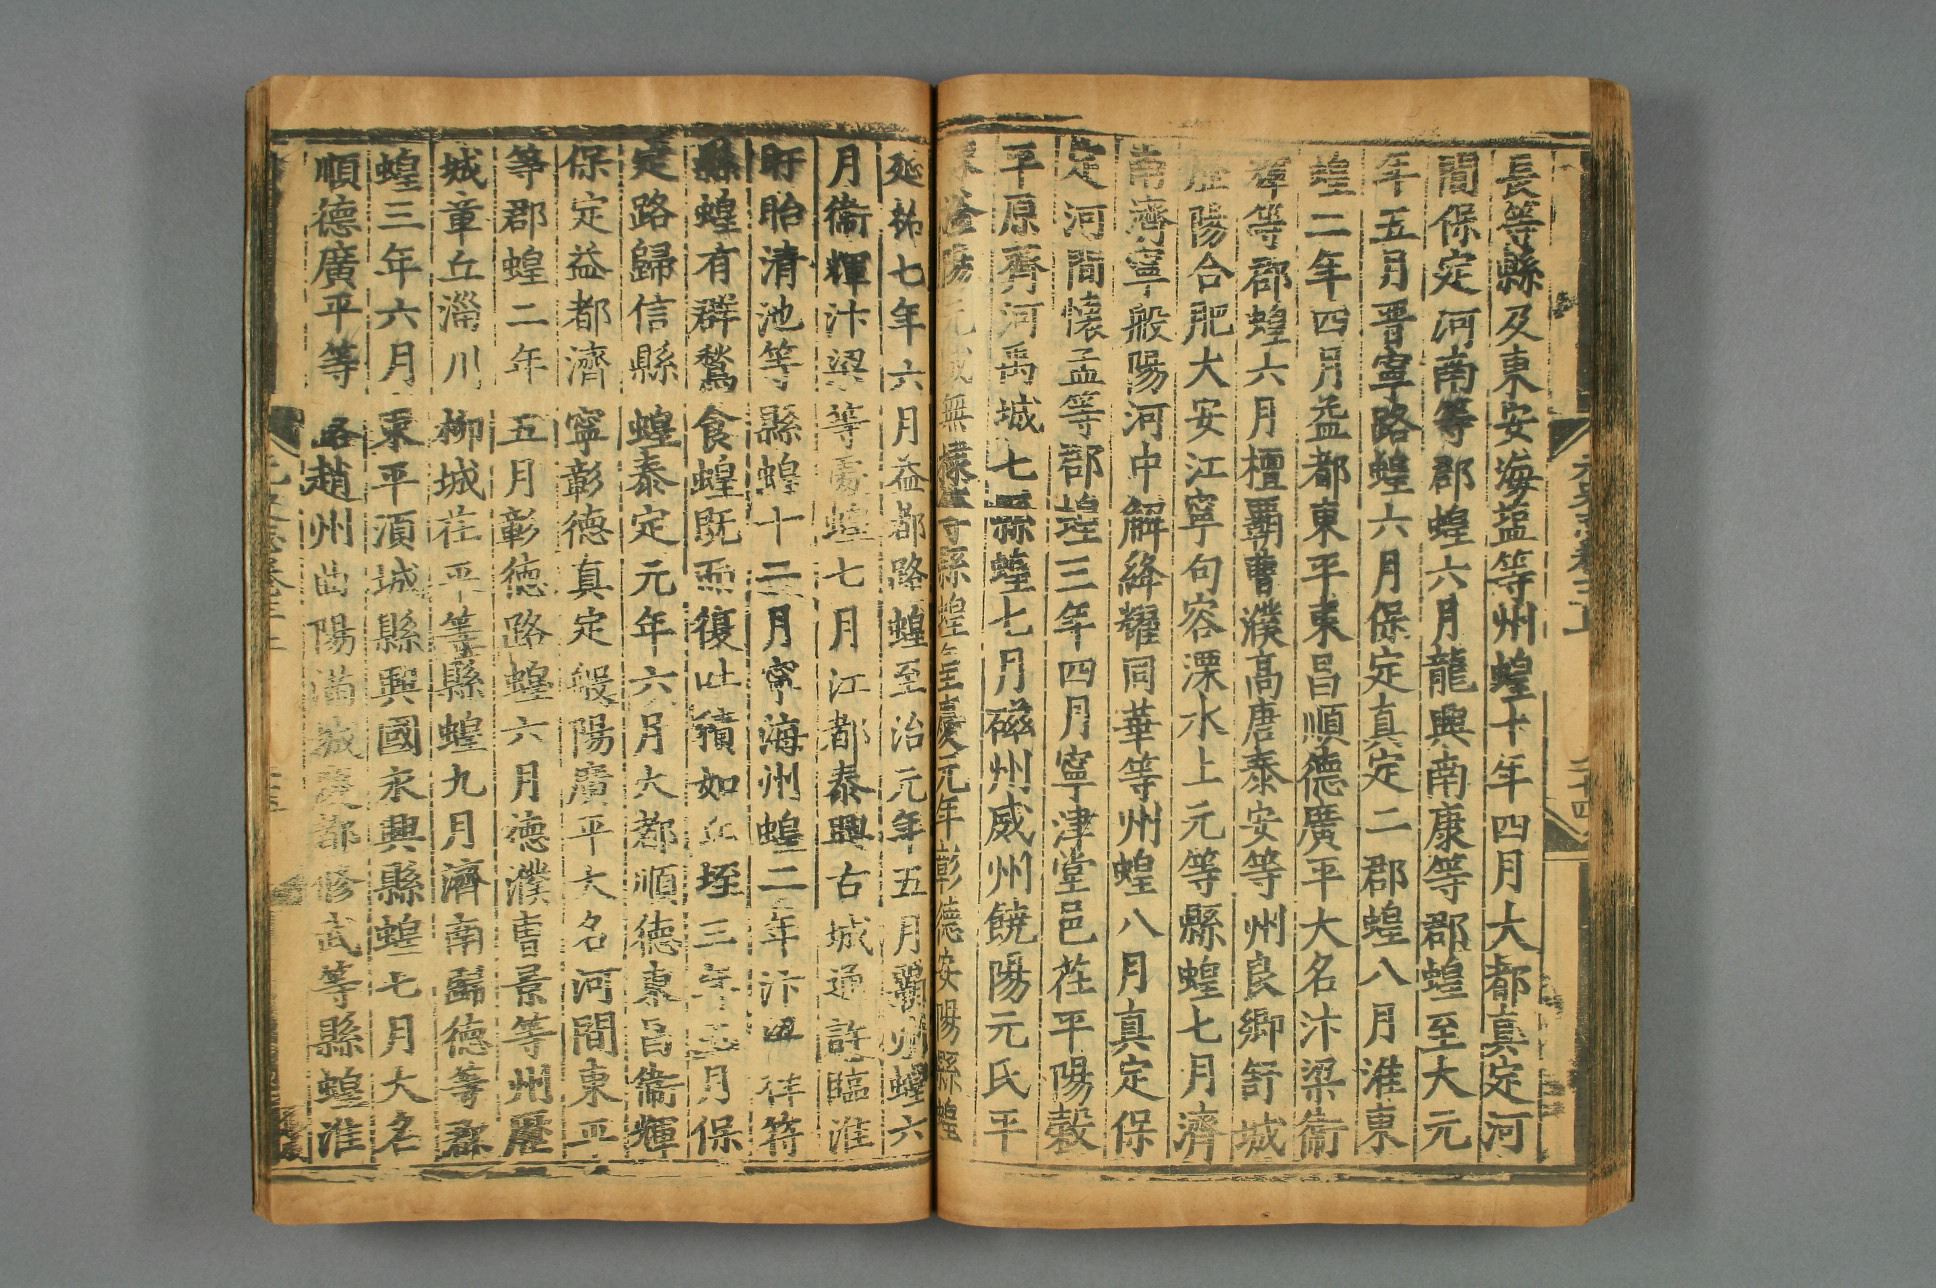 長等縣及東安海盐等州蝗十年四月大都真定河
間保定河南等郡蝗六月龍興南康等郡蝗至大元
年五月晋寧路蝗六月保定真定二郡蝗八月淮東
蝗二年四月益都東平東昌順德廣平大名汴梁衛
輝等郡蝗六月檀霸曹濮髙唐泰安等州良鄉舒城
歷陽合肥大安江寧句容溧水上元等縣蝗七月濟
南濟寧般陽河中解絳耀同華等州蝗八月真定保
定河間懷孟等郡蝗三年四月寧津堂邑茌平陽榖
平原齊河禹城七縣蝗七月磁州威州饒陽元氏平
陽元城無棣等縣蝗皇慶元年彰德安陽縣蝗
延祐七年六月益都路蝗至治元年五月霸州蝗六
月衞輝汴梁等處蝗七月江都泰興古城通許臨淮
盱眙清池等縣蝗十二月寧海州蝗二年汴祥符
縣蝗有群鶖食蝗既而復吐積如丘垤三年五月保
定路歸信縣蝗泰定元年六月大都順德東昌衞輝
保定益都濟寧彰德真定般陽廣平大名河間東平
等郡蝗二年五月彰德路蝗六月德濮曹景等州歷
城章丘淄川柳城茌平等縣蝗九月濟南歸德等郡
蝗三年六月東平湏城縣興國永興縣蝗七月大名
順德廣平等路趙州曲陽满城慶都修武等縣蝗淮